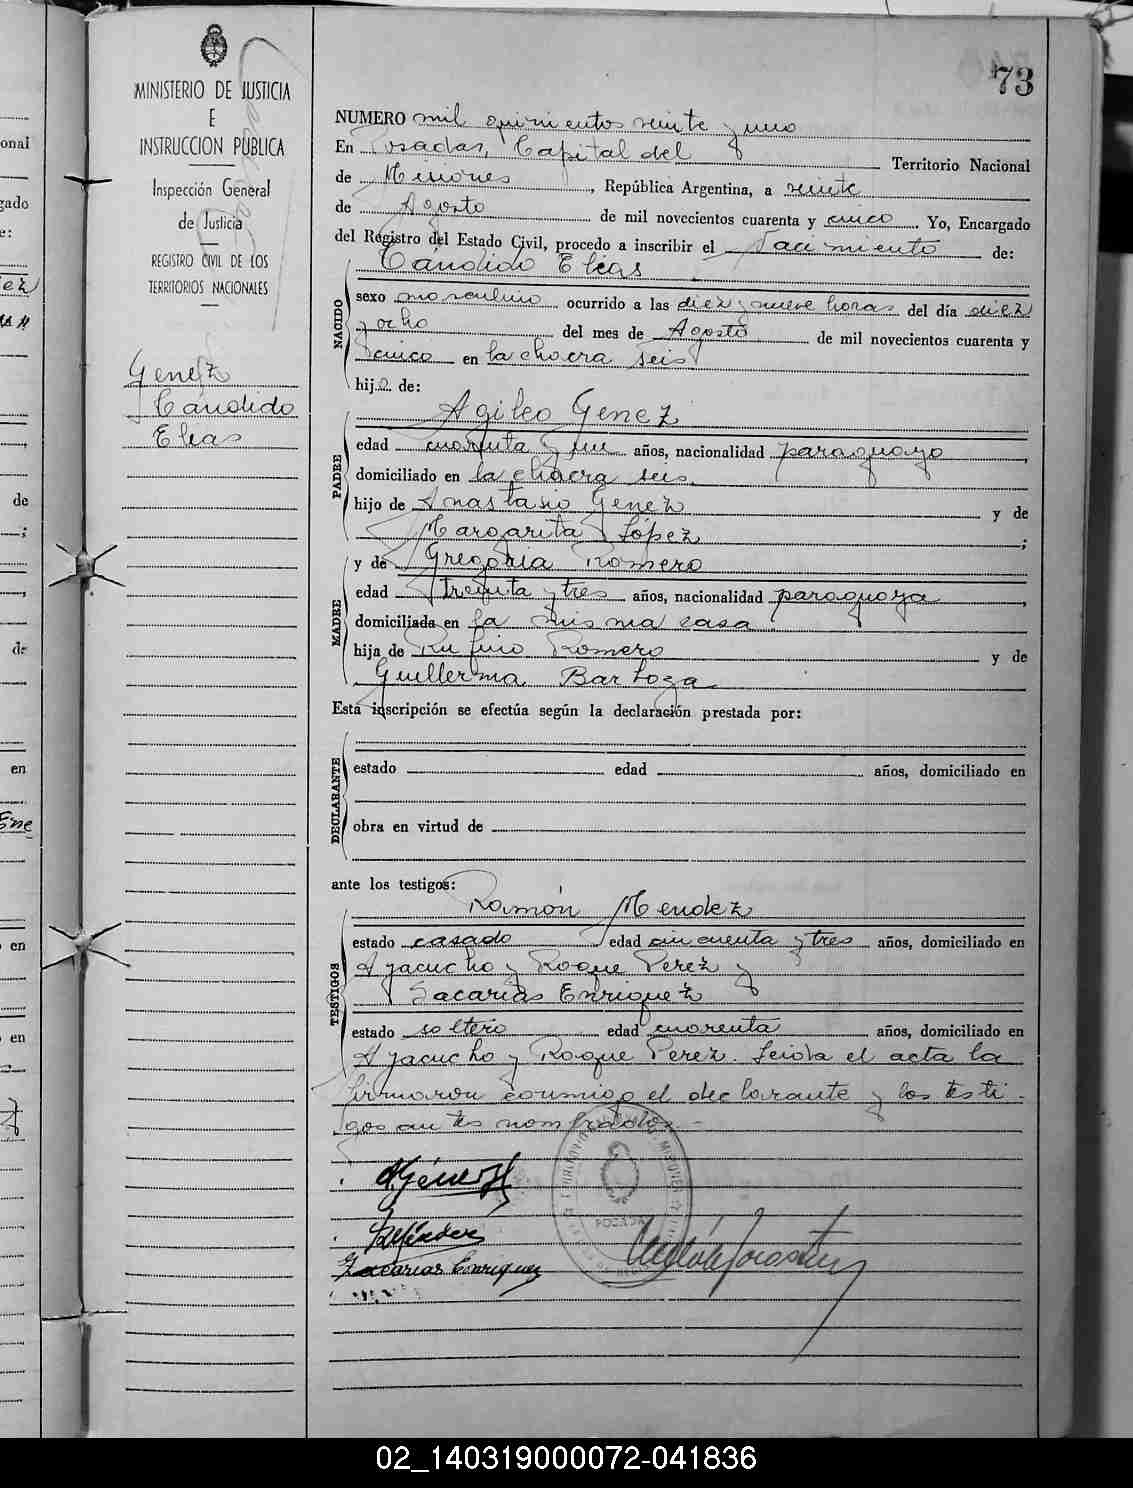 73
MINISTERIO DE JUSTICIA
E
INSTRUCCION PUBLICA
Inspección General
de Justicia
REGISTRO CIVIL DE LOS
TERRITORIOS NACIONALES
Genez
Cándido
Elias
NUMERO mil quinientos veinte y uno
En Posadas, Capital del Territorio Nacional
de Misiones, República Argentina, a veinte
de Agosto de mil novecientos cuarenta y cinco Yo, Encargado
del Registro del Estado Civil, procedo a inscribir el Nacimiento de:
Cándido Elias
NACIDO
sexo masculino ocurrido a las diez y nueve horas del día diez
y ocho del mes de Agosto de mil novecientos cuarenta y
cinco en la chacra seis
hijo de:
Agileo Genez
PADRE
edad cuarenta y un años, nacionalidad paraguayo,
domiciliado en la chacra seis.
hijo de Anastasio Genez y de
Margarita López;
y de Gregoria Romero
MADRE
edad treinta y tres años, nacionalidad paraguaya,
domiciliada en la misma casa
hija de Rufino Romero y de
Guillerma Bartoza
Esta inscripción se efectúa según la declaración prestada por:
DECLARANTE
estado edad años, domiciliado en
obra en virtud de
ante los testigos:
Ramón Mendez
TESTIGOS
estado casado edad cincuenta y tres años, domiciliado en
Ayacucho y Roque Perez y
Sacarias Enriquez
estado soltero edad cuarenta años, domiciliado en
Ayacucho y Roque Perez. Leida el acta la
firmaron conmigo el declarante y los testi-
gos antes nombrados.-
AGénez
RMéndez
Zacarias Enriquez
POSADAS
02_140319000072-041836